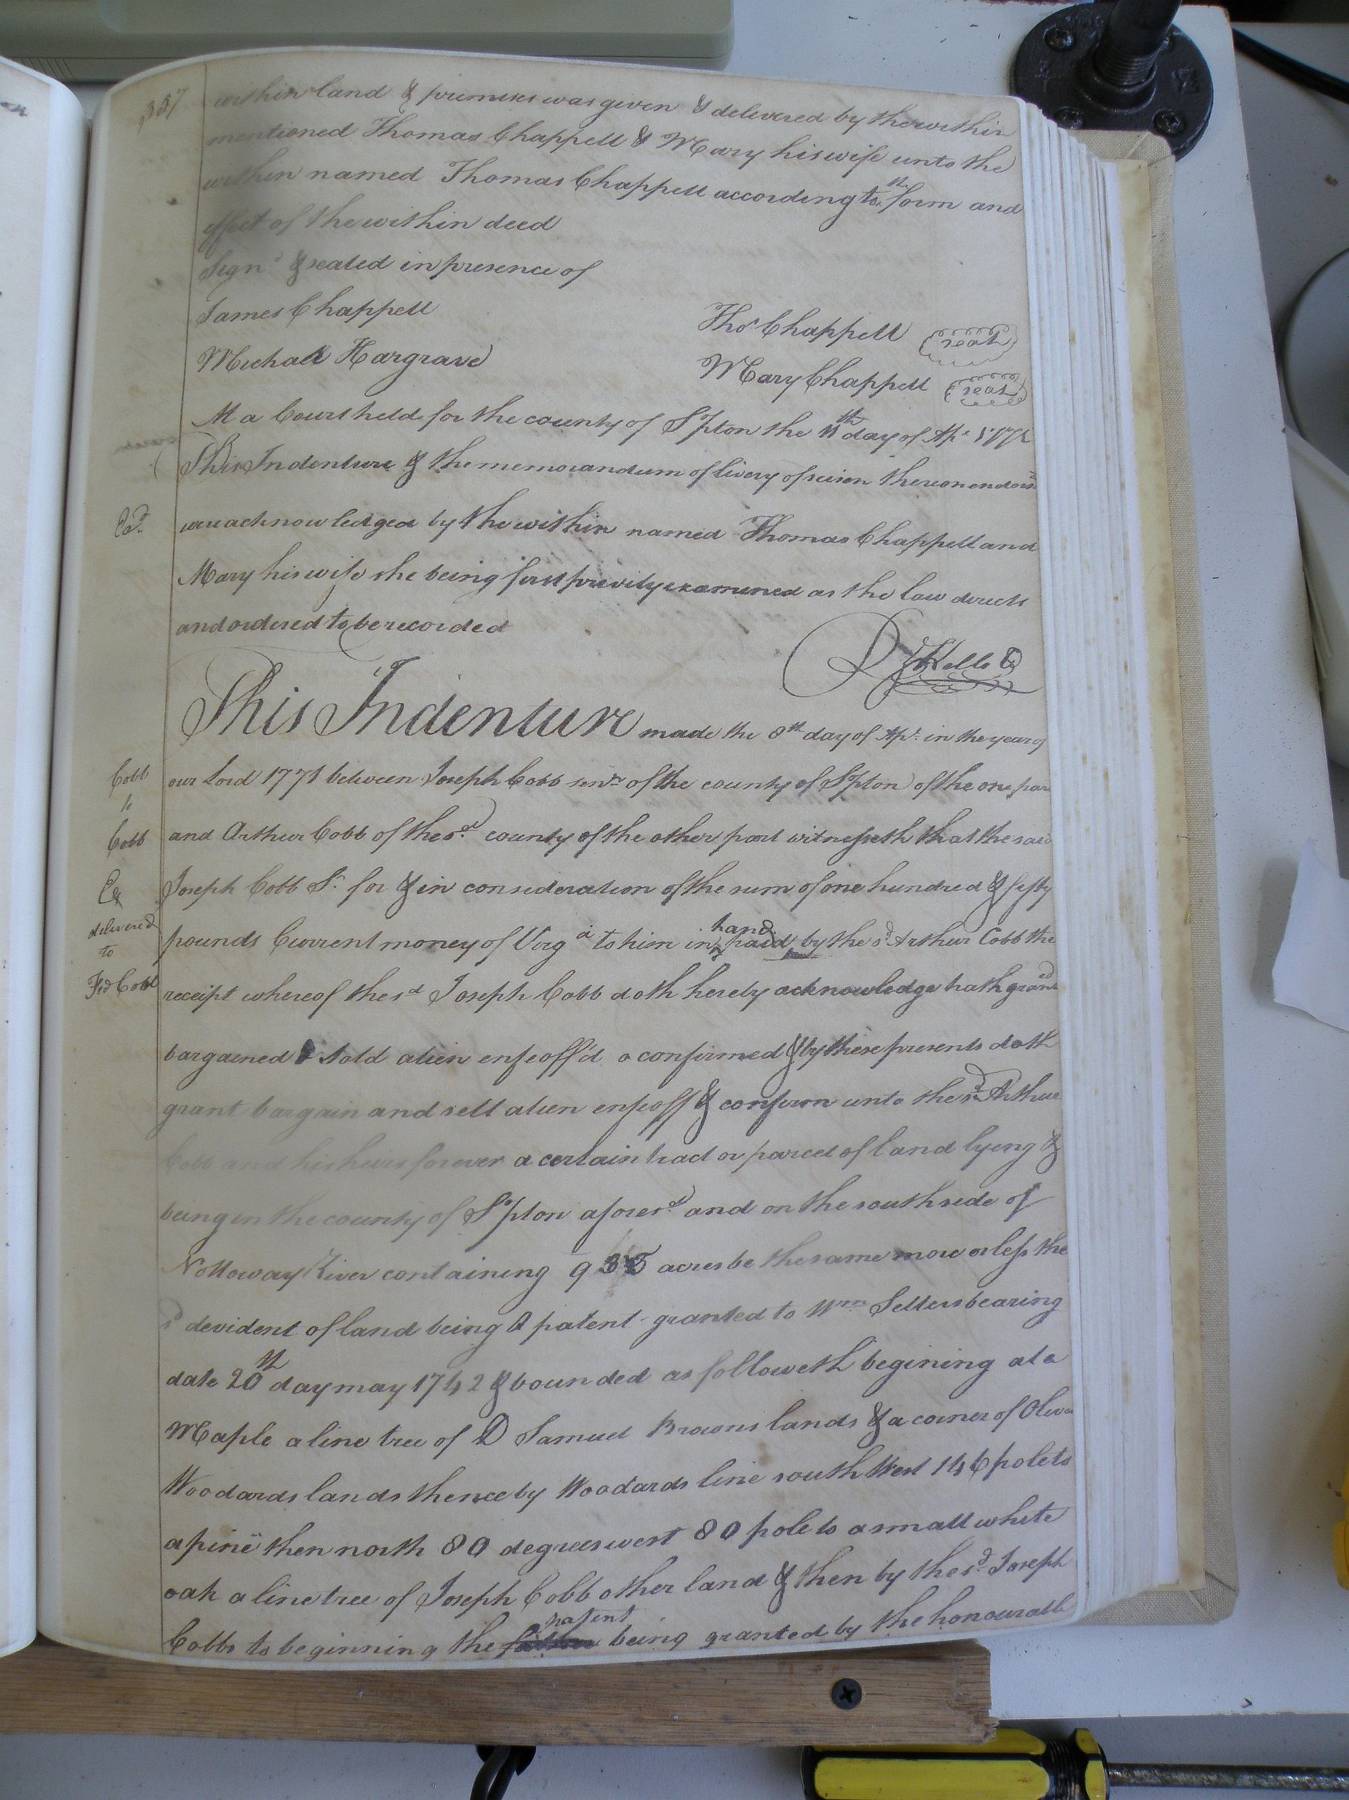 337
within land & premises was given & delivered by the within
mentioned Thomas Chappell & Mary his wife unto the
within named Thomas Chappell according to the form and
effect of the within deed
Sign'd & sealed in presence of
James Chappell
Thos Chappell seal
Michall Hargrave
Mary Chappell seal
At a Court held for the county of S'pton the 11th day of Apr 1771
This Indenture & the memorandum of livery of seisen thereon endorsd
Exd
were acknowledged by the within named Thomas Chappell and
Mary his wife she being first privily examined as the law directs
and ordered to be recorded
This Indenture made the 8th day of Apr. in the year of
Cobb
to
Cobb
our Lord 1771 between Joseph Cobb senr of the county of S'pton of the one part
and Arthur Cobb of the sd county of the other part witnesseth that the said
Ex
delivered
to
Fed Cobb
Joseph Cobb Sr for & in consideration of the sum of one hundred & fifty
pounds Current money of Virga to him in hand paid by the sd Arthur Cobb the
receipt whereof the sd Joseph Cobb doth hereby acknowledge hath grantd
bargained & sold alien enfeoff'd & confirmed & by these presents doth
grant bargain and sell alien enfeoff & confirm unto the sd Arthur
Cobb and his heirs forever a certain tract or parcel of land lying &
being in the county of S'pton aforesd and on the south side of
Nottoway River containing 935 acres be the same more or less the
sd devident of land being A patent granted to Wm Sellers bearing
date 20th day may 1742 & bounded as followeth begining at a
Maple a line tree of D Samuel Browns lands & a corner of Oliver
Woodards lands thence by Woodards line south West 146 pole to
a pine then north 80 degrees west 80 pole to a small white
oak a line tree of Joseph Cobb other land & then by the sd Joseph
Cobbs to beginning the patent being granted by the honourable